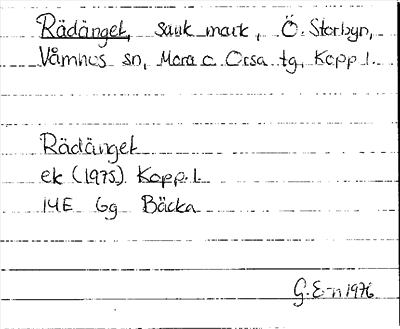 Rädänget, sank mark, Ö. Storbyn,
Våmhus sn, Mora o. Orsa tg, Kopp l.
Rädänget
ek (1975) Kopp. l.
14E 6g Bäcka
G. E-n 1976